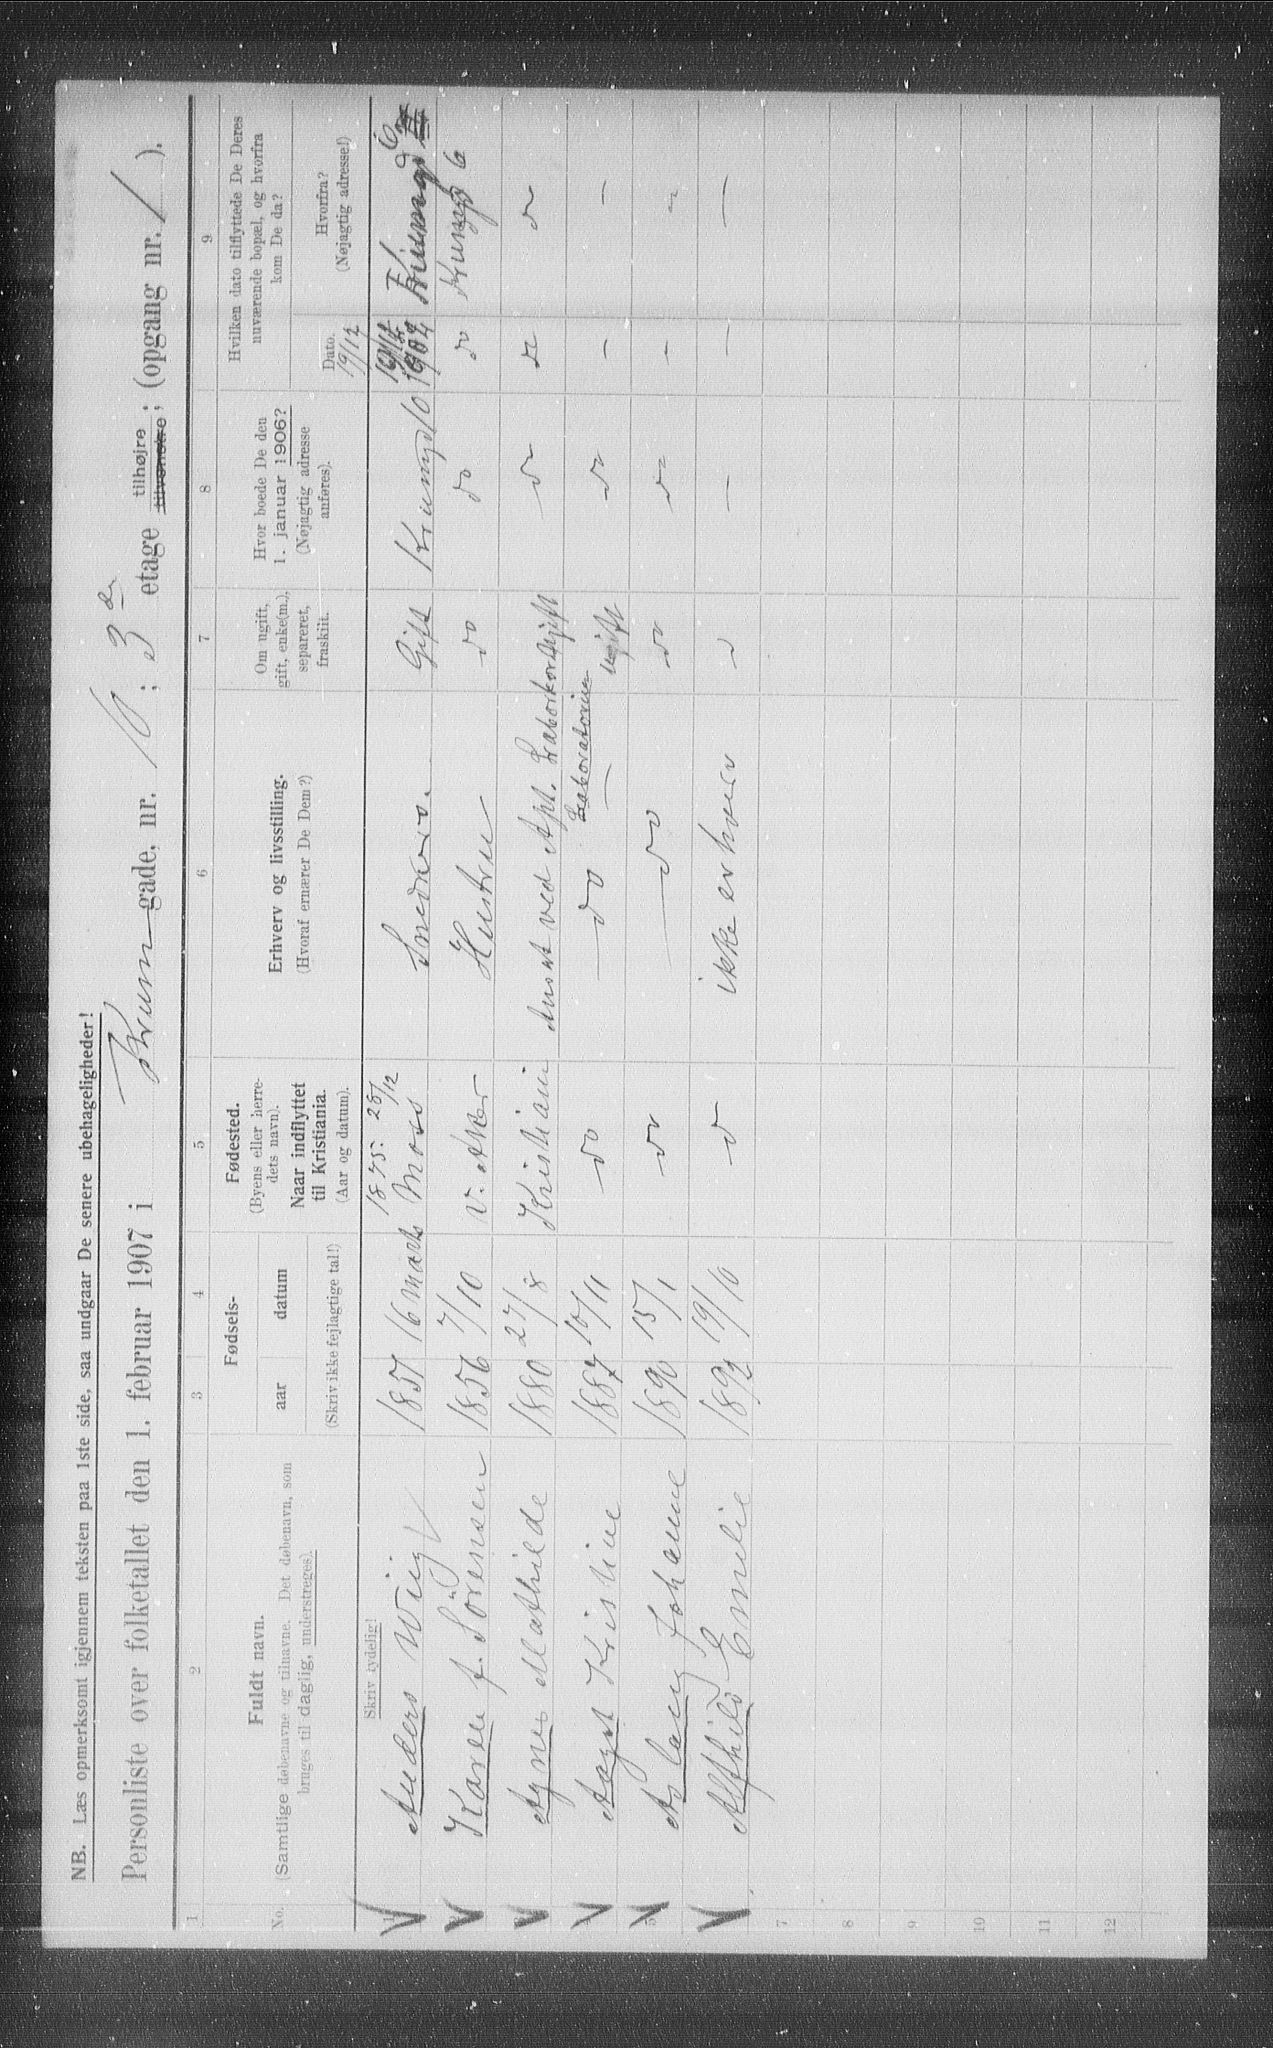 NB. Læs opmerksomt igjennem teksten paa 1ste side, saa undgaar De senere ubehageligheder!
Personliste over folketallet den 1. februar 1907 i Krum gade, nr. 10; 3 de etage tilhøjre tilvenstre; (opgang nr. 1).
1 2 3 4 5 6 7 8 9
No.
Fuldt navn.
(Samtlige døbenavne og tilnavne. Det døbenavn, som
bruges til daglig, understreges).
Skriv tydelig!
Fødsels-
aar datum
(Skriv ikke fejlagtige tal!)
Fødested.
(Byens eller herre-
dets navn).
Naar indflyttet
til Kristiania.
(Aar og datum).
Erhverv og livsstilling.
(Hvoraf ernærer De Dem?)
Om ugift,
gift, enke(m.),
separeret,
fraskilt.
Hvor boede De den
1. januar 1906?
(Nøjagtig adresse
anføres).
Hvilken dato tilflyttede De Deres
nuværende bopæl, og hvorfra
kom De da?
Dato.
19/12
Hvorfra?
(Nøjagtig adresse!)
1875. 28/12
1 Anders Wiig 1851 16 marts Moss Snedker. Gift Krumgd 10 1902 Krumgd 6
2 Karen f. Sörensen 1856 7/10 V. Aker Hustru do do do Krumgd 6
3 Agnes Mathilde 1880 27/8 Kristiania Ansat ved Apt. Laborator Ugift do do do
Laboratorium
4 Aagot Kristine 1887 10/11 do — do — Ugift do — —
5 Aslaug Johanne 1890 15/1 do — do do do — "
6 Alfhild Emilie 1892 19/10 do ikke erhverv do — — —
7
8
9
10
11
12